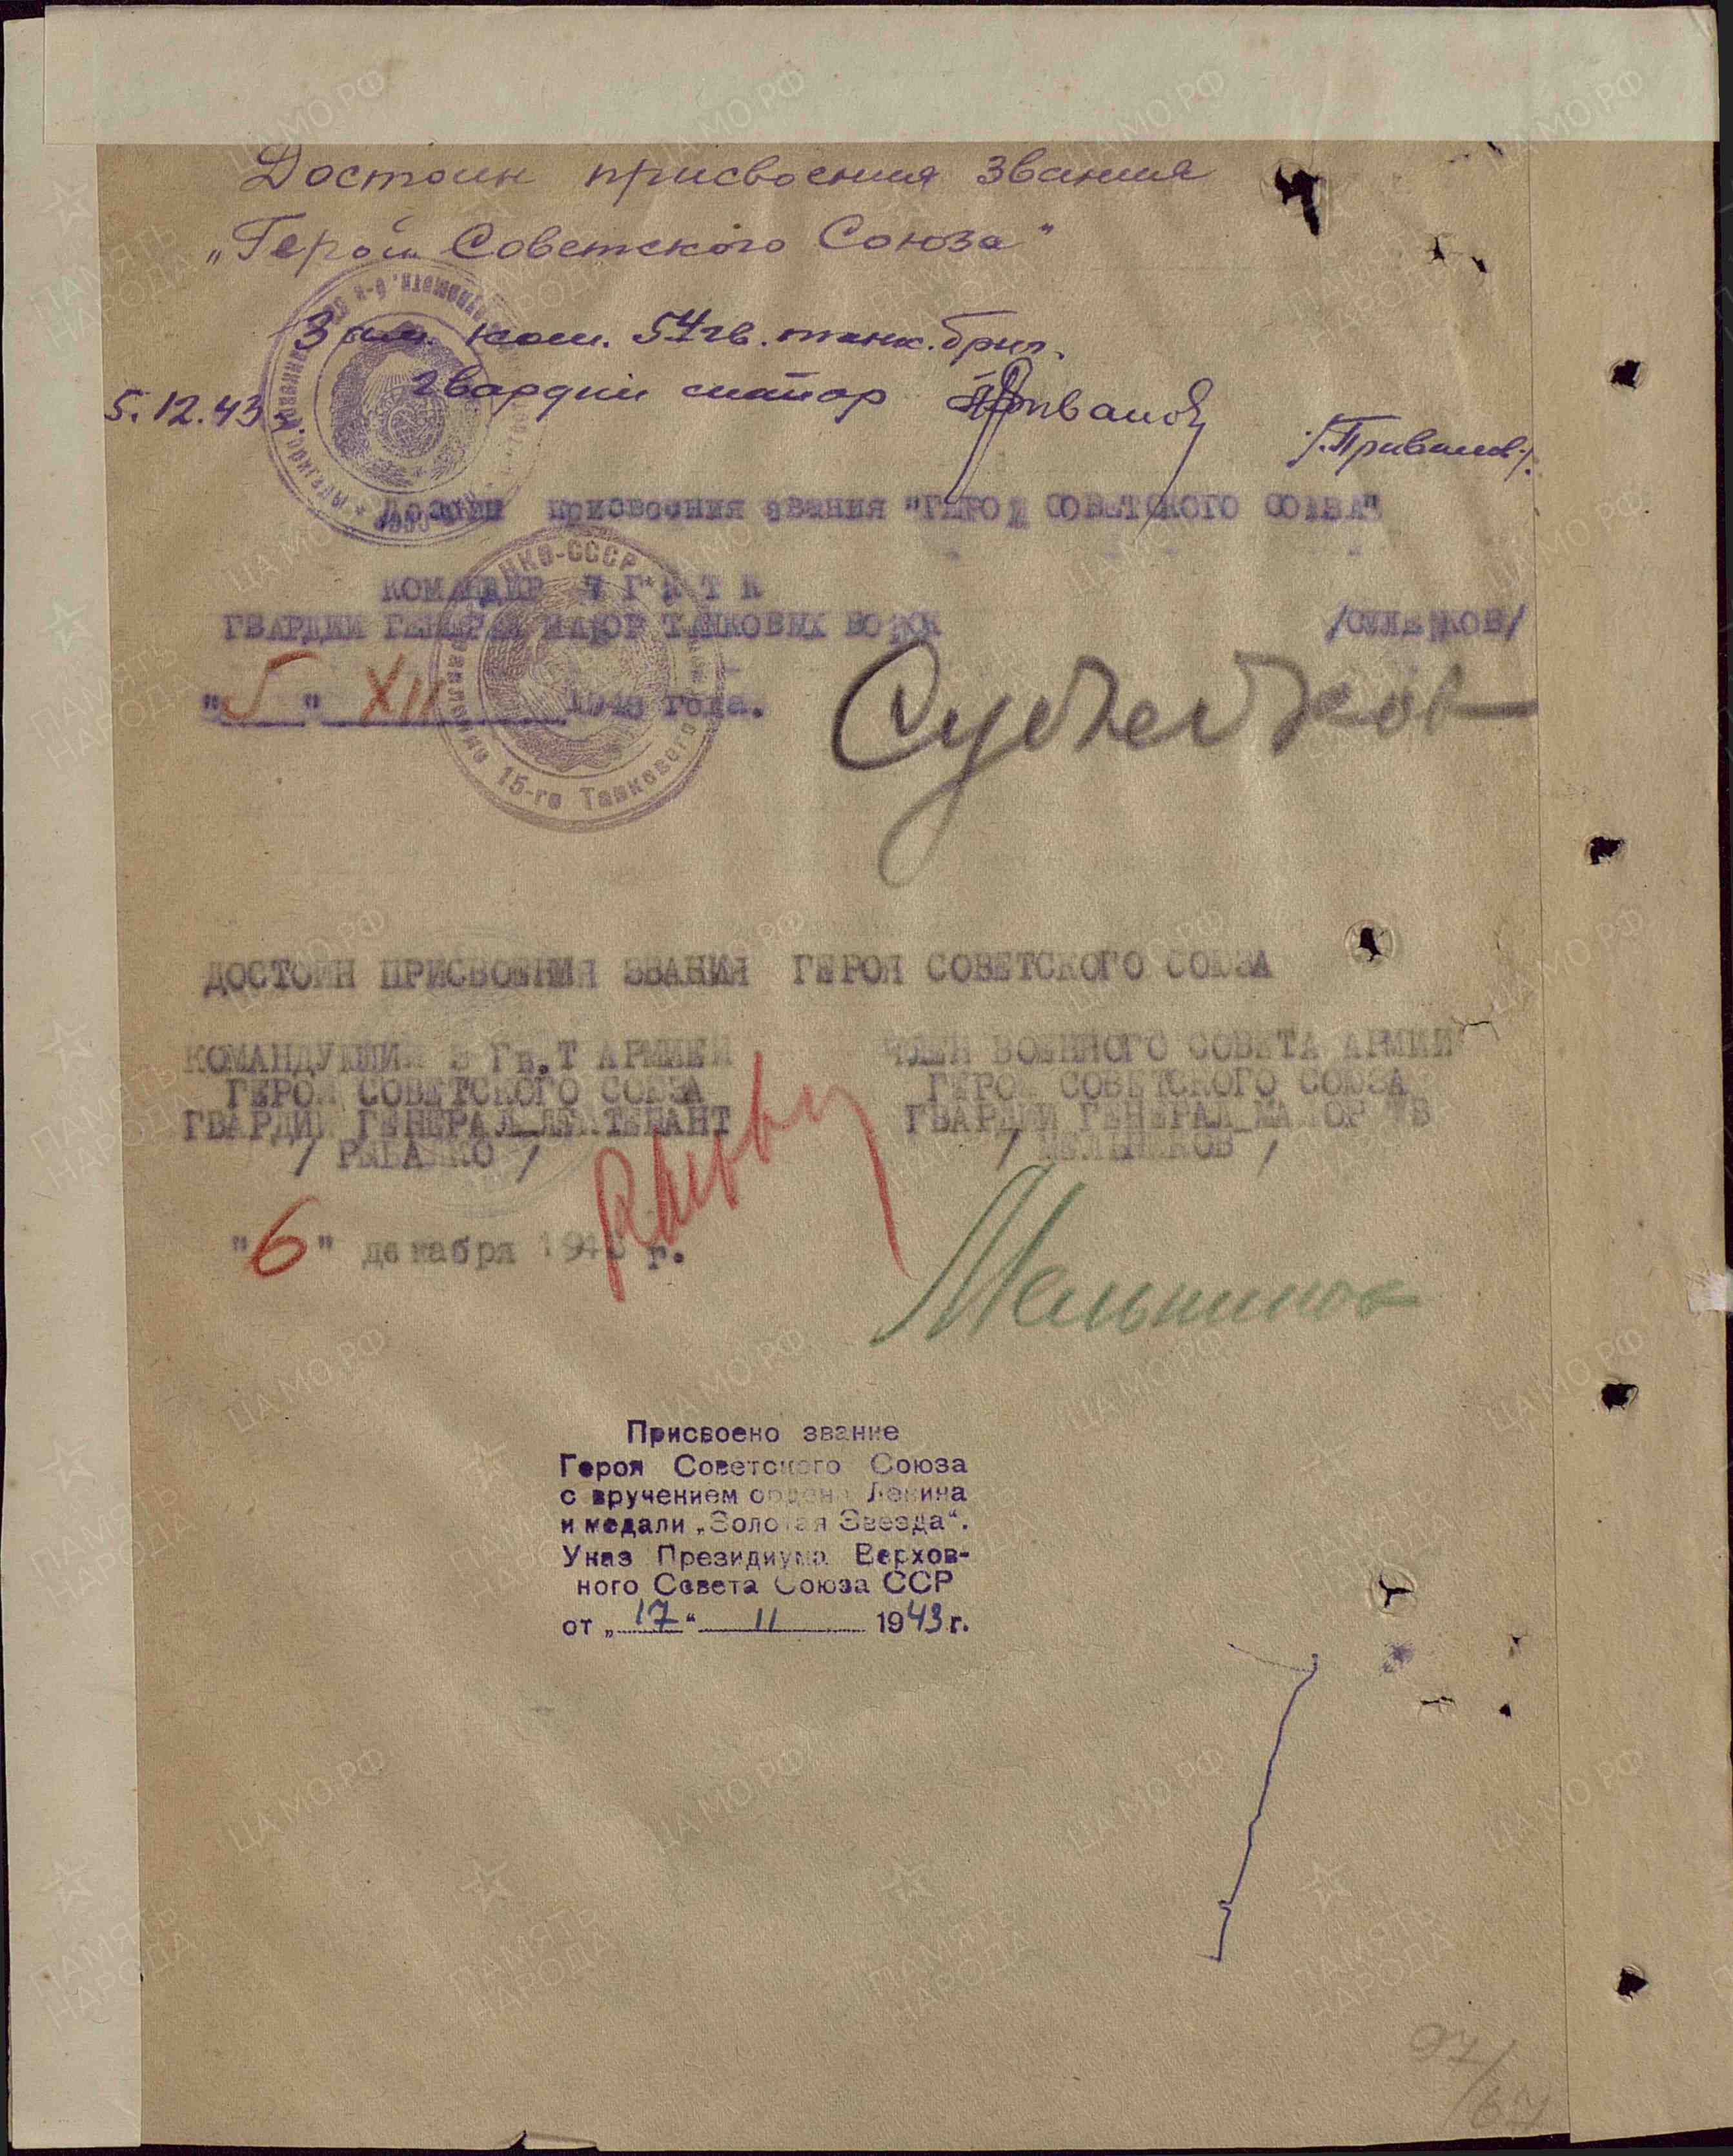 Достоин присвоения звания
„Герой Советского Союза"
Зам. ком. 54 гв. танк. бриг.
гвардии майор
5.12.43 г.
/.Привалов./
Достоин присвоения звания "ГЕРОЙ СОВЕТСКОГО СОЮЗА"
НКО-СССР
15-го Танкового
КОМАНДИР
ГВАРДИИ ГЕНЕРАЛ МАЙОР ТАНКОВЫХ ВОЙСК
"5" XII 1943 года.
ДОСТОИН ПРИСВОЕНИЯ ЗВАНИЯ ГЕРОЯ СОВЕТСКОГО СОЮЗА
КОМАНДУЮЩИЙ 3 Гв.Т АРМИЕЙ
ГЕРОЙ СОВЕТСКОГО СОЮЗА
ГВАРДИИ ГЕНЕРАЛ_ЛЕЙТЕНАНТ
/ РЫБАЛКО /
"6" декабря 1943 г.
ЧЛЕН ВОЕННОГО СОВЕТА АРМИИ
ГЕРОЙ СОВЕТСКОГО СОЮЗА
ГВАРДИИ ГЕНЕРАЛ_МАЙОР ТВ
/ МЕЛЬНИКОВ /
Мельников
Присвоено звание
Героя Советского Союза
с вручением ордена Ленина
и медали „Золотая Звезда".
Указ Президиума Верхов-
ного Совета Союза ССР
от „17" 11 1943 г.
97/
67
ЦАМО.РФ
ПАМЯТЬ
НАРОДА